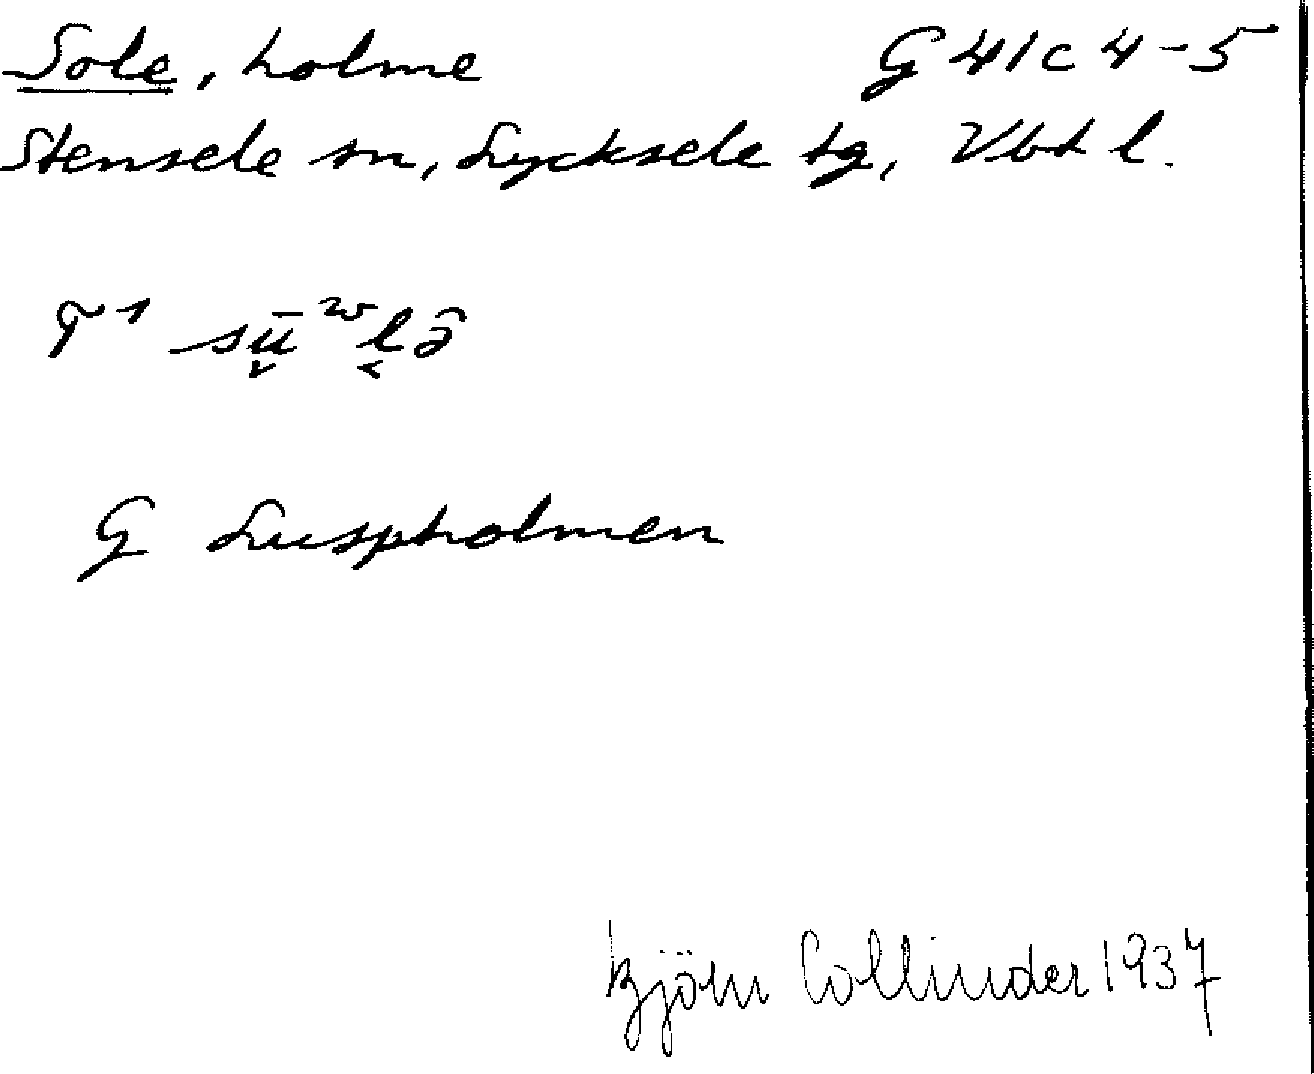 Sole, holme G 41c 4-5
Stensele sn, Lycksele tg, Vbt l.
T¹ sū̬ʷl͔ə̑
G Luspholmen
Björn Collinder 1937